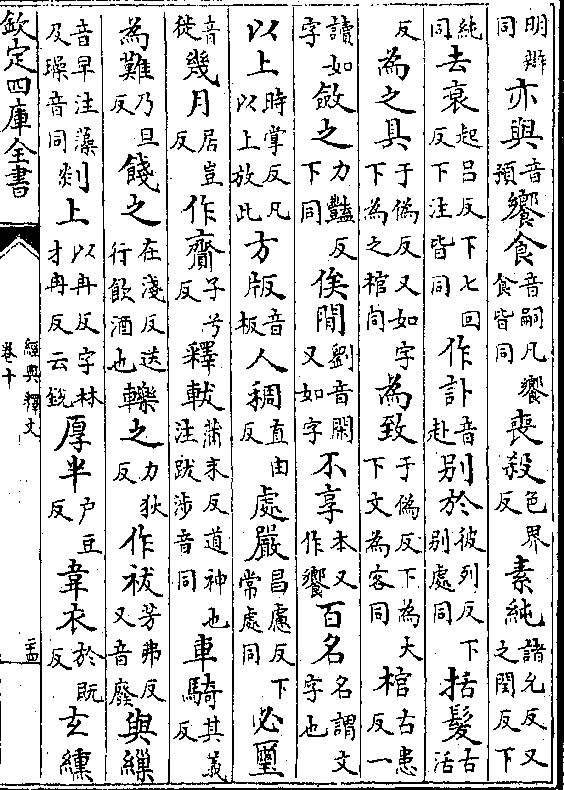 明辨同亦與音預饗食音嗣凡饗食皆同喪殺色界反素純諸允反又之閏反下
純同去衰起呂反下七回反下注皆同作訃音赴别於彼列反下别處同括髮古活
反為之具于偽反又如字下為之棺同為致于偽反下為大下文為客同棺古患反一
讀如字斂之力豔反下同俟間劉音閑又如字不享本又作饗百名名謂文字也
以上時掌反凡以上放此方版音板人稠直由反處嚴昌慮反下常處同必璽
音徙幾月居豈反作齎子兮反釋軷蒲末反道神也注跋涉音同車騎其義反
為難乃旦反餞之在淺反送行飲酒也轢之力狄反作祓芳弗反又音廢與繅
音早注藻及璪音同剡上以冉反字林才冉反云銳厚半户豆反韋衣於既反玄纁
欽定四庫全書
經典釋文
卷十